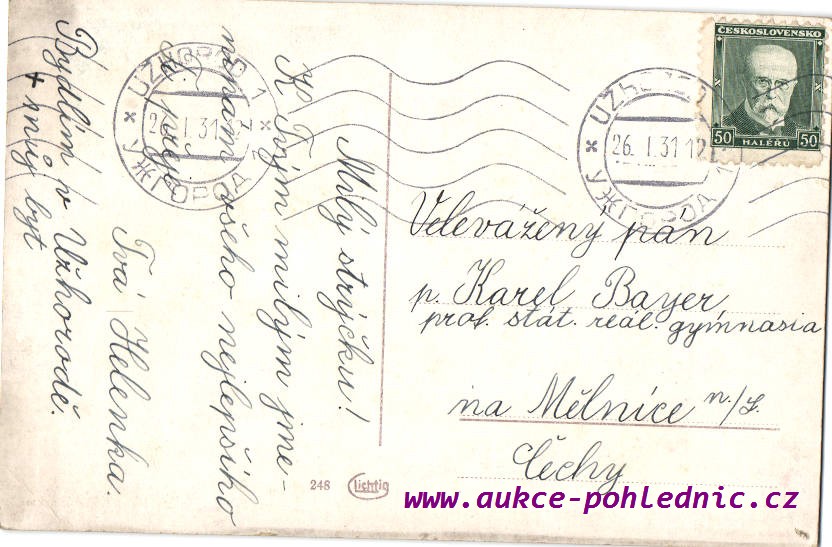 Milý strýčku!
K Tvým milým jme-
ninám všeho nejlepšího
Tvá Helenka.
Bydlím v Užhorodě.
+ můj byt
ČESKOSLOVENSKO
50 50
HALÉŘŮ
UŽHOROD 1
26. I. 31
УЖГОРОД
UŽHOROD
26. I. 31 12
УЖГОРОД 1
Velevážený pán
p. Karel Bayer,
prof. stát. reál. gymnasia
na Mělnice n./L.
Čechy
248 Lichtig
www.aukce-pohlednic.cz